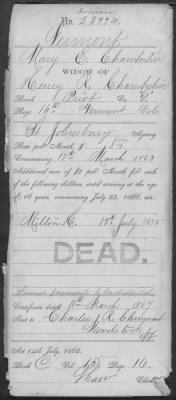 Increase
No. 23994.
Vermont,
Mary E. Chamberlin
WIDOW OF
Henry R. Chamberlin
Rank Privt Co. "G"
Reg't 16th Vermont Vols
St. Johnsbury Agency
Rate per Month $ 8.00
Commencing 17th March 1863
Additional sum of $2 per Month for each
of the following children, until arriving at the age
of 16 years, commencing July 25, 1866, viz:
Milton R. 13th July 1875
DEAD.
Former payments to be deducted
Certificate dated 11th March 1867
Sent to Charles P.
Woodstock
Vt
Act 14th July, 1862.
Book C Vol. 15 Page 16.
Clerk.